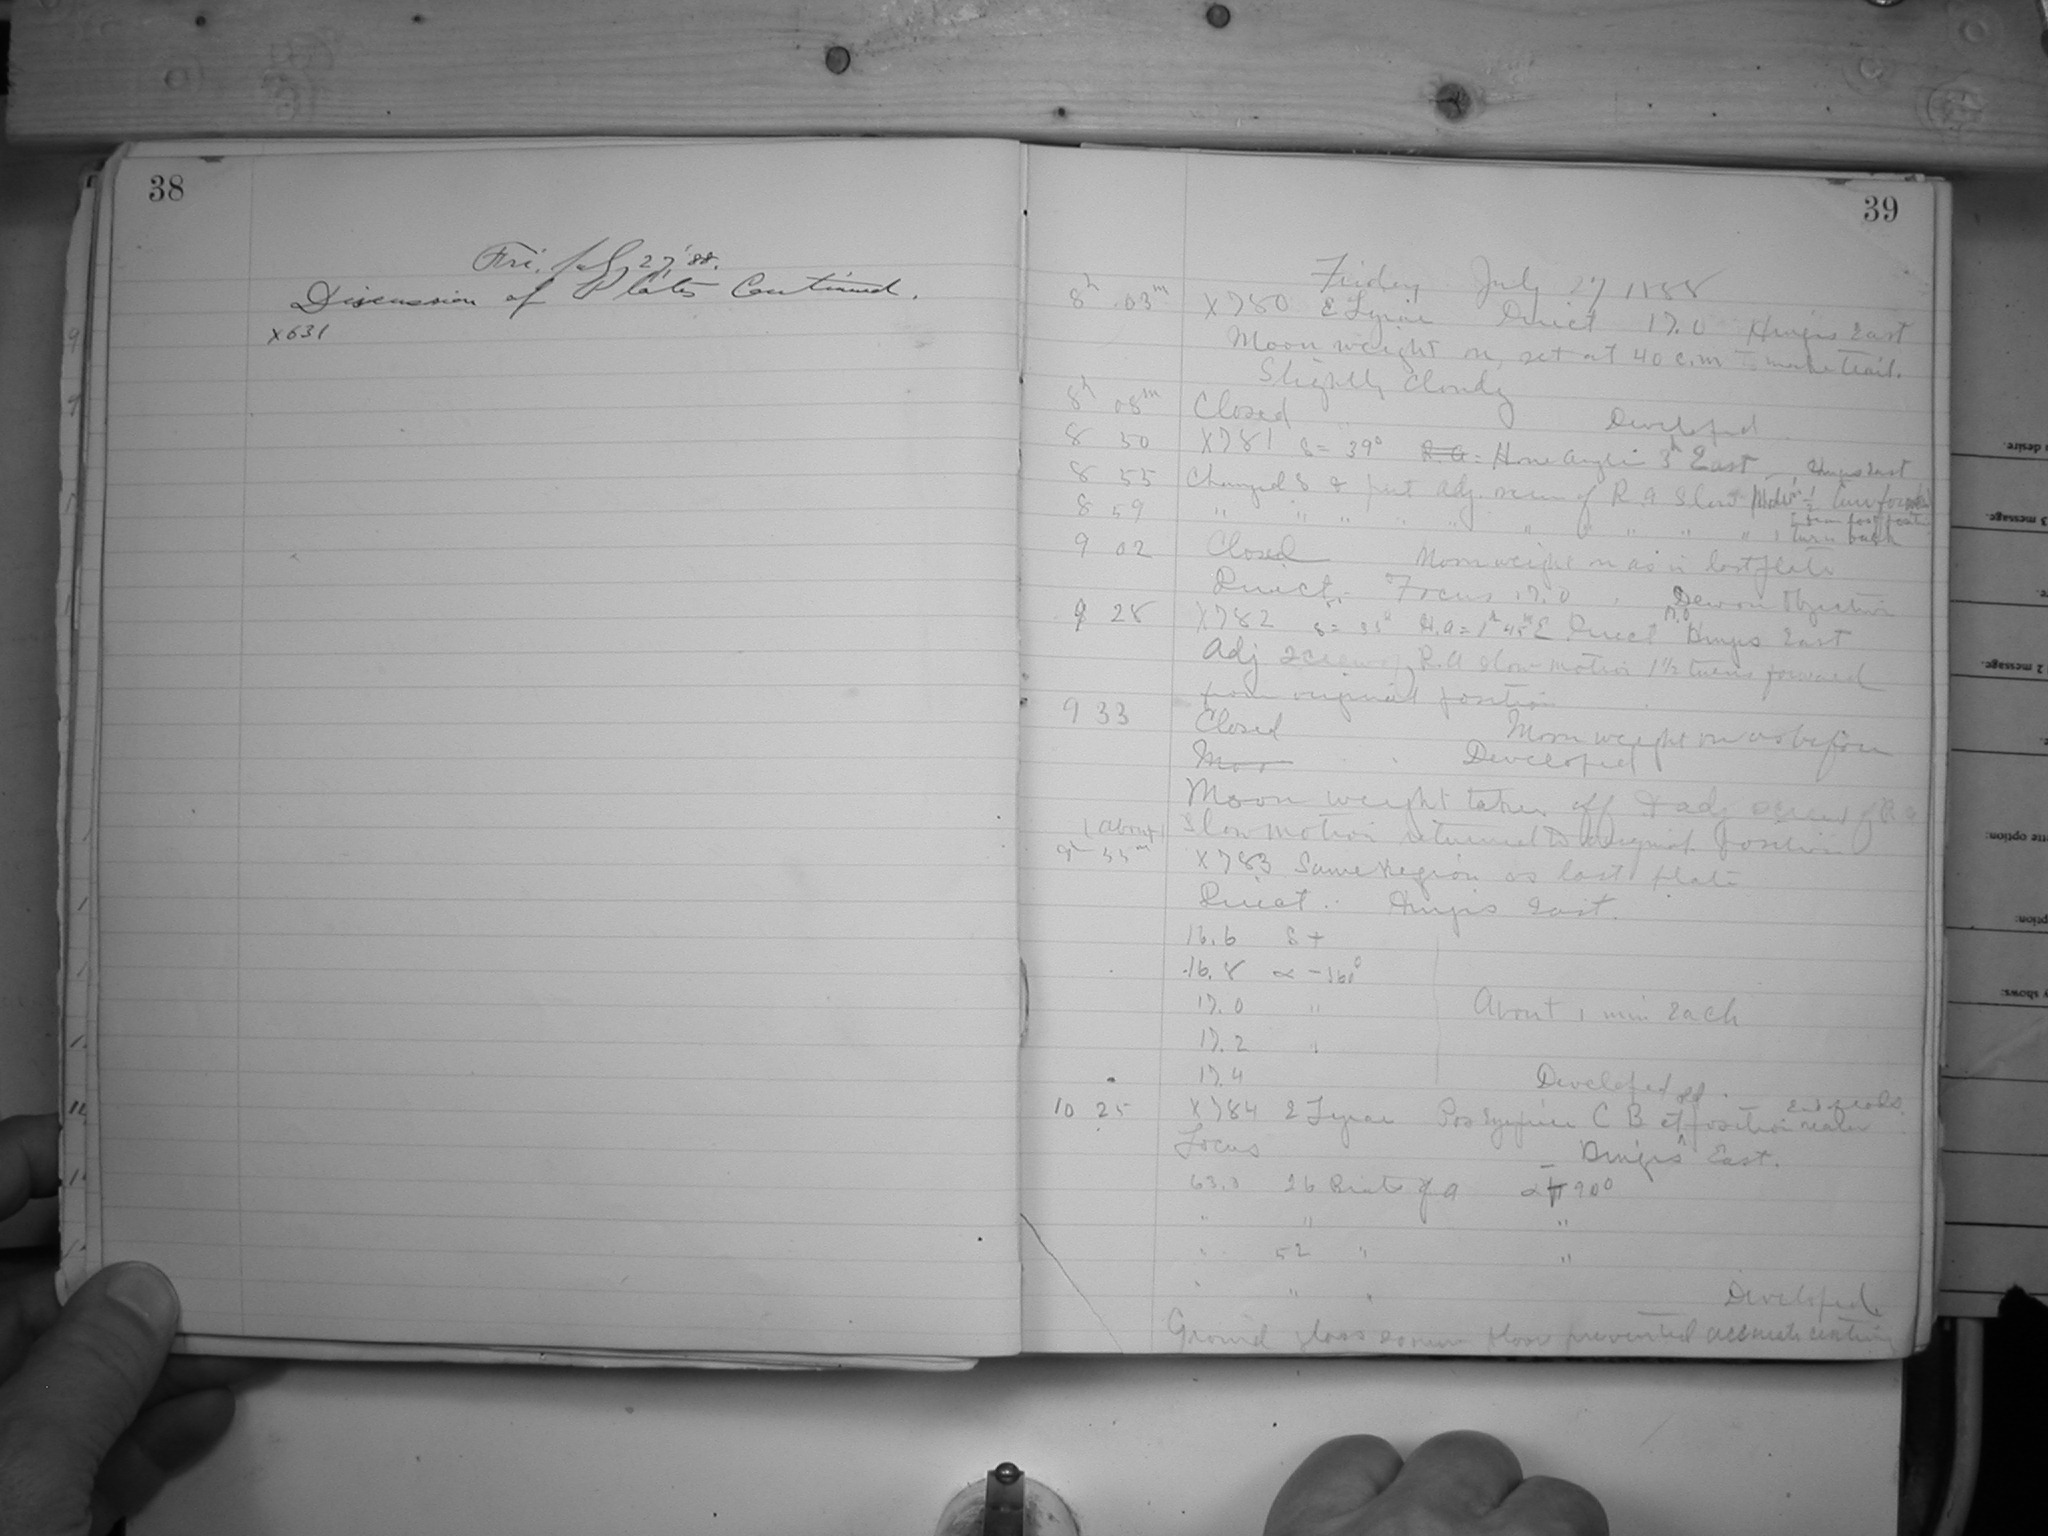 38
Fri. July 27, '88.
Discussion of Plates Continued.
X631
39
Friday July 27 1888
8h 03m X780 ε Lyrae Direct 17.0 Hinges East
Moon weight on, set at 40 c.m to make trail.
Slightly Cloudy
8h 08m Closed Developed
8 50 X781 δ = 39° R.A. = Hour Angle 3h East, Hinges East
8 55 Changed δ & put adj. screw of R.A. Slow Motion 1/2 turn forward
8 59 " " " " " " " " " 1 turn back
from first position
9 02 Closed Moon weight on as in last plate
Direct. Focus 17.0. Dew on Objective
9 28 X782 δ = 35° H.A = 1h 45m E Direct 17.0 Hinges East
Adj screw of R.A slow motion 1½ turns forward
from original position
9 33 Closed Moon weight on as before
Moo Developed
Moon weight taken off & adj screw of R.A
(about) Slow motion returned to original position
9h 55m X783 Same region as last plate
Direct. Hinges East.
16.6 δ +
16.8 α -
17.0 " About 1 min Each
17.2 "
17.4 Developed
10 25 X784 ε Lyrae C B at position nearer
Focus Hinges East.
26 of a α 90°
" " "
" 52 " "
" " " Developed
Ground glass prevented accurate